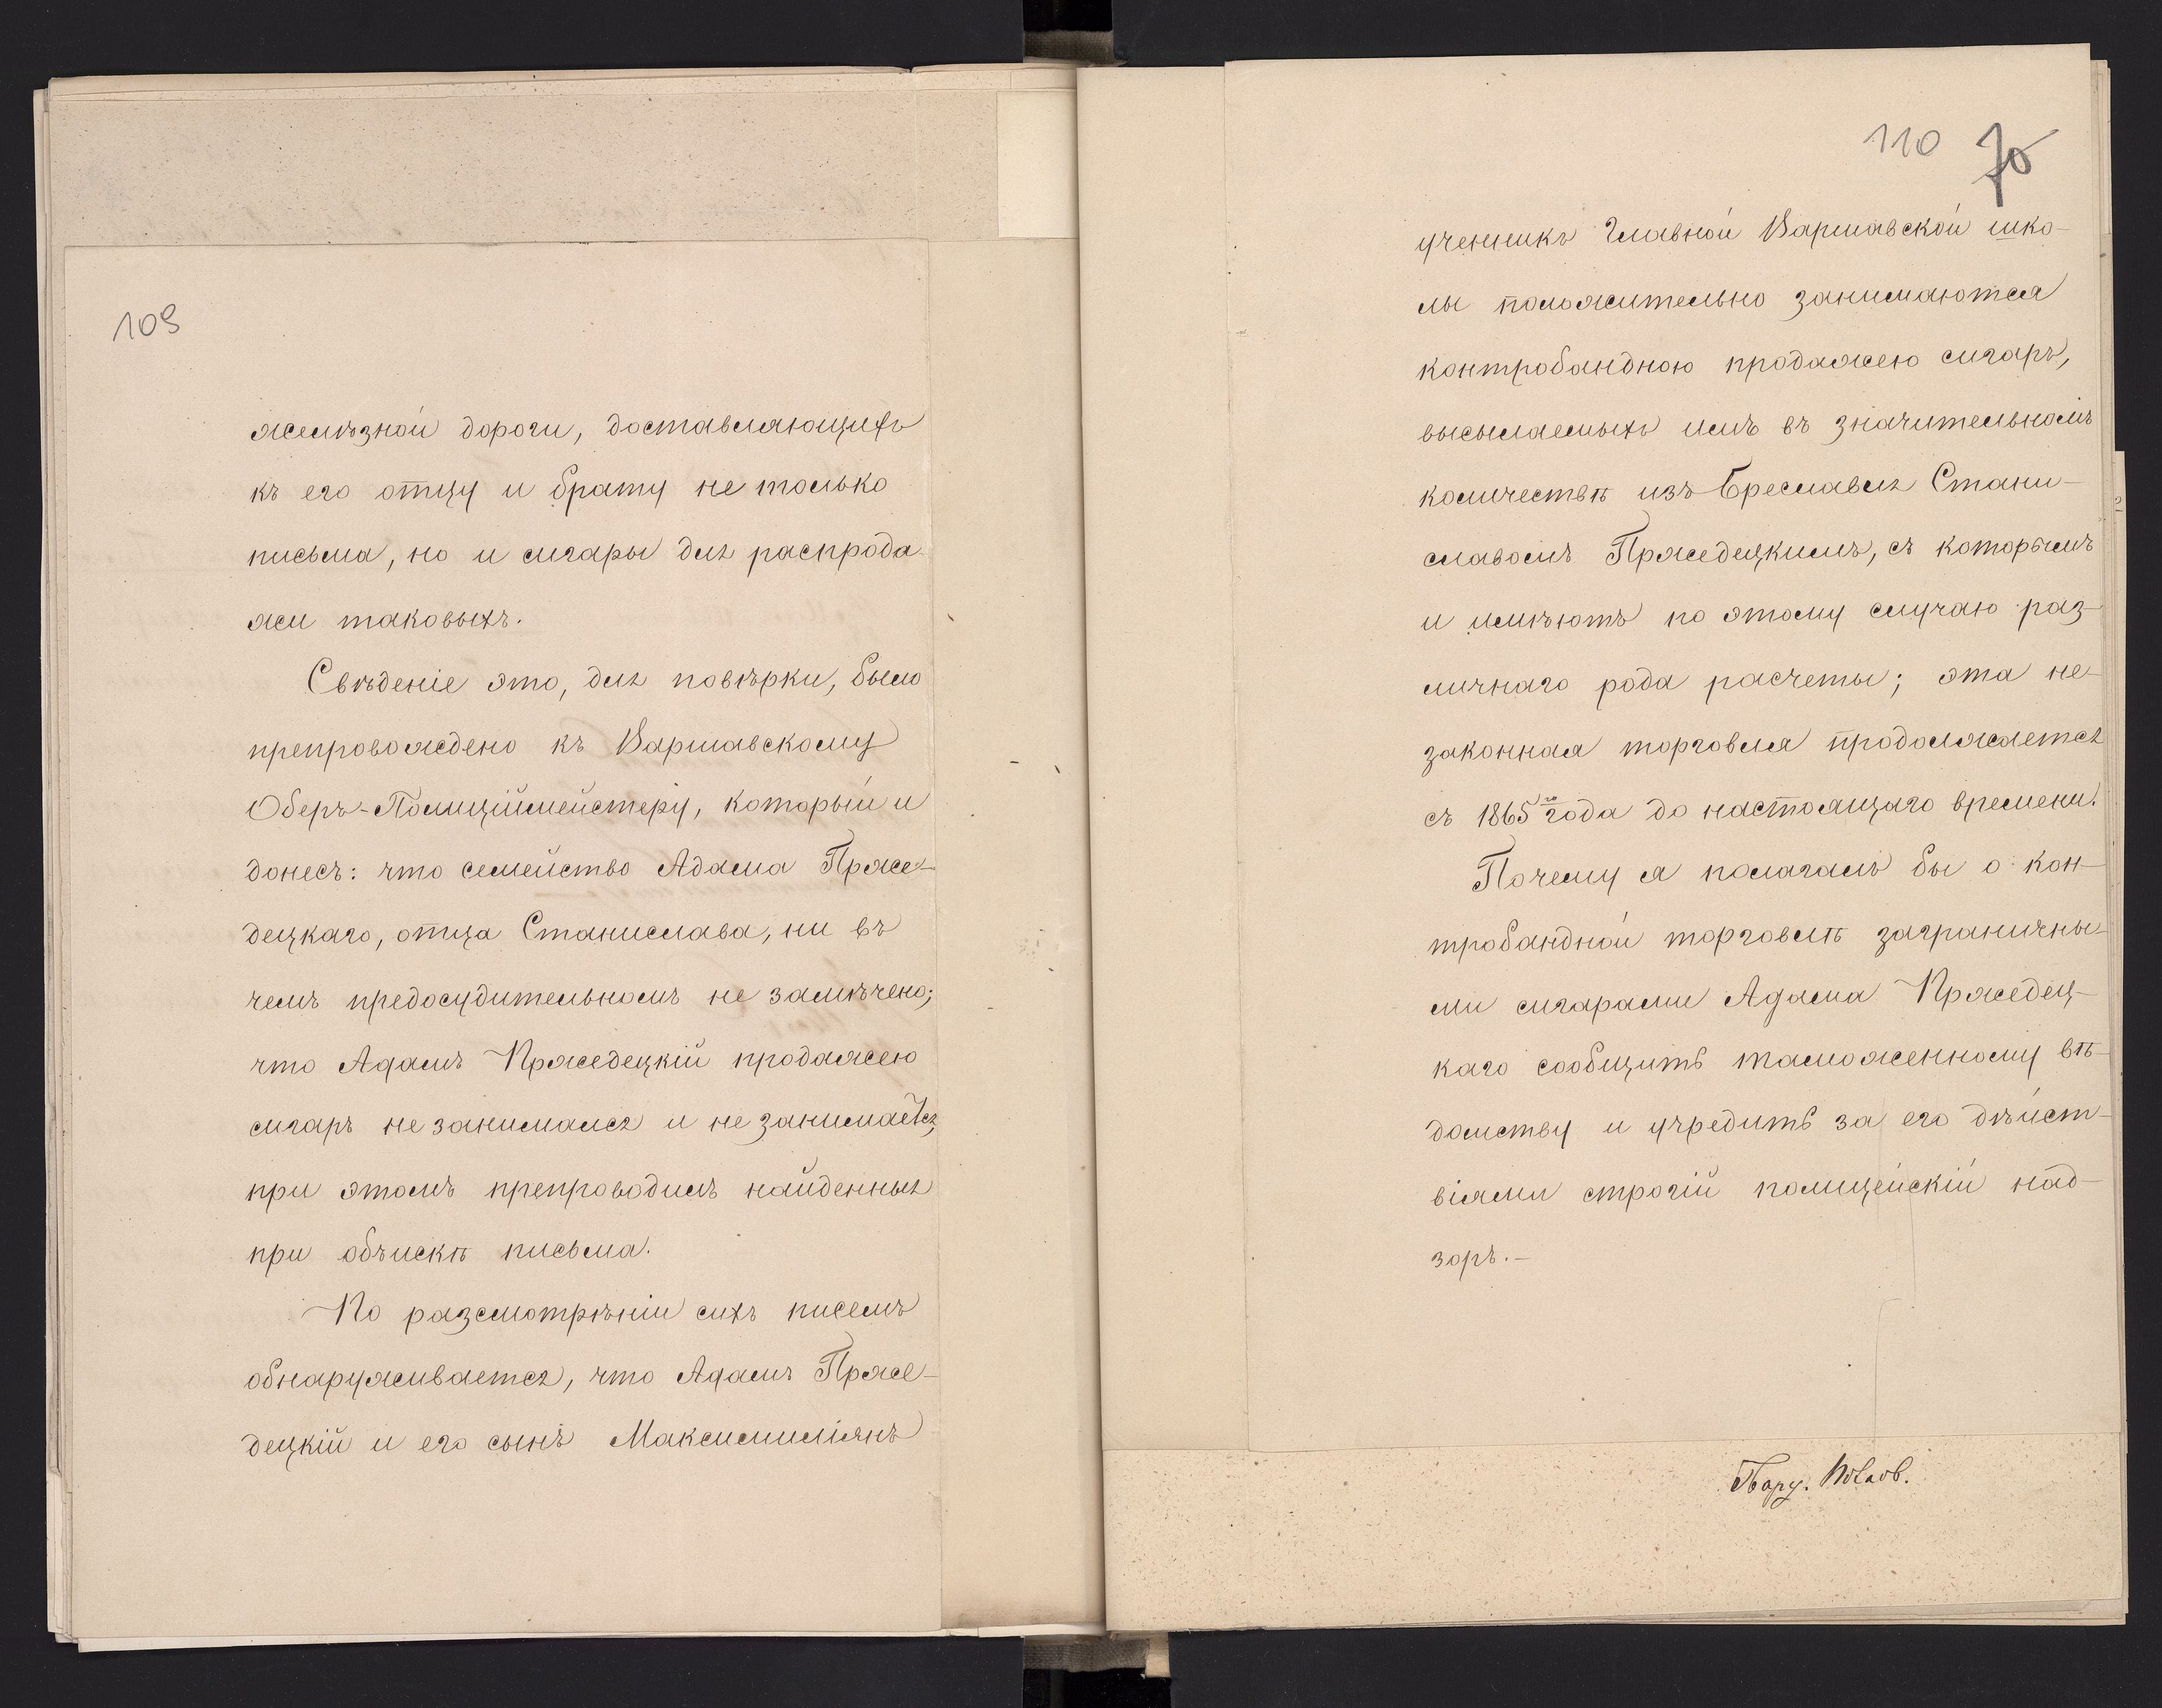 109
желѣзной дороги, доставляющихъ
къ его отцу и брату не только
письма, но и сигары для распрода-
жи таковыхъ.
Свѣденіе это, для повѣрки, было
препровождено къ Варшавскому
Оберъ-Полиціймейстеру, который и
донесъ: что семейство Адама Прже-
децкаго, отца Станислава, ни въ
чемъ предосудительномъ не замѣчено;
что Адамъ Пржедецкій продажею
сигаръ не занимался и не занимается,
при этомъ препроводилъ найденныя
при обыскѣ письма.
По разсмотрѣніи сихъ писемъ
обнаруживается, что Адамъ Прже-
децкій и его сынъ Максимиліянъ
110 70
ученикъ Главной Варшавской шко-
лы положительно занимаются
контробандною продажею сигаръ,
высылаемыхъ имъ въ значительномъ
количествѣ изъ Бреславля Стани-
славомъ Пржедецкимъ, съ которымъ
и имѣютъ по этому случаю раз-
личнаго рода расчеты; эта не-
законная торговля продолжается
съ 1865 го года до настоящаго времени.
Почему я полагалъ бы о кон-
тробандной торговлѣ заграничны-
ми сигарами Адама Пржедец-
каго сообщить таможенному вѣ-
домству и учредить за его дѣйст-
віями строгій полицейскій над-
зоръ.-